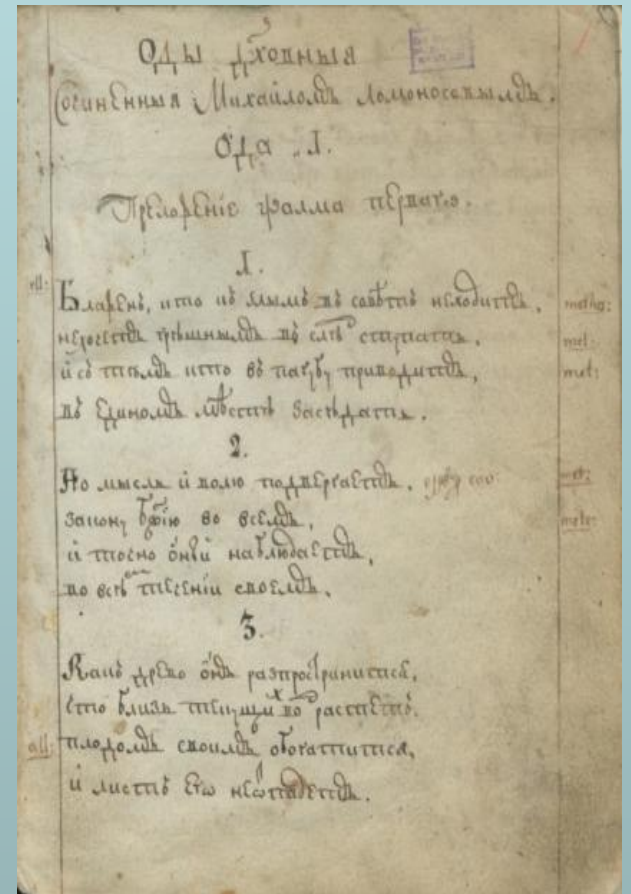 Оды дх҃овныя
Сочиненныя Михайломъ Ломоносовымъ.
Ода I.
Преложеніе ѱалма перваго.
1.
all: Блаженъ, кто къ злымъ въ совѣтъ неходитъ, metho:
нехочетъ грѣшнымъ въ слѣдъ ступать, met:
и съ тѣмъ кто въ пагубу приводитъ, met:
въ единомъ мѣстѣ засѣдать.
2.
Но мысль и волю подвергаетъ, met:
закону бж҃ію во всемъ,
и точно оный наблюдаетъ,
во всемъ теченіи своемъ.
3.
Какъ древо онъ разпространится,
что близь текущихъ водъ растетъ.
all: плодомъ своимъ обогатится,
и листъ егѡ неѿпадетъ.